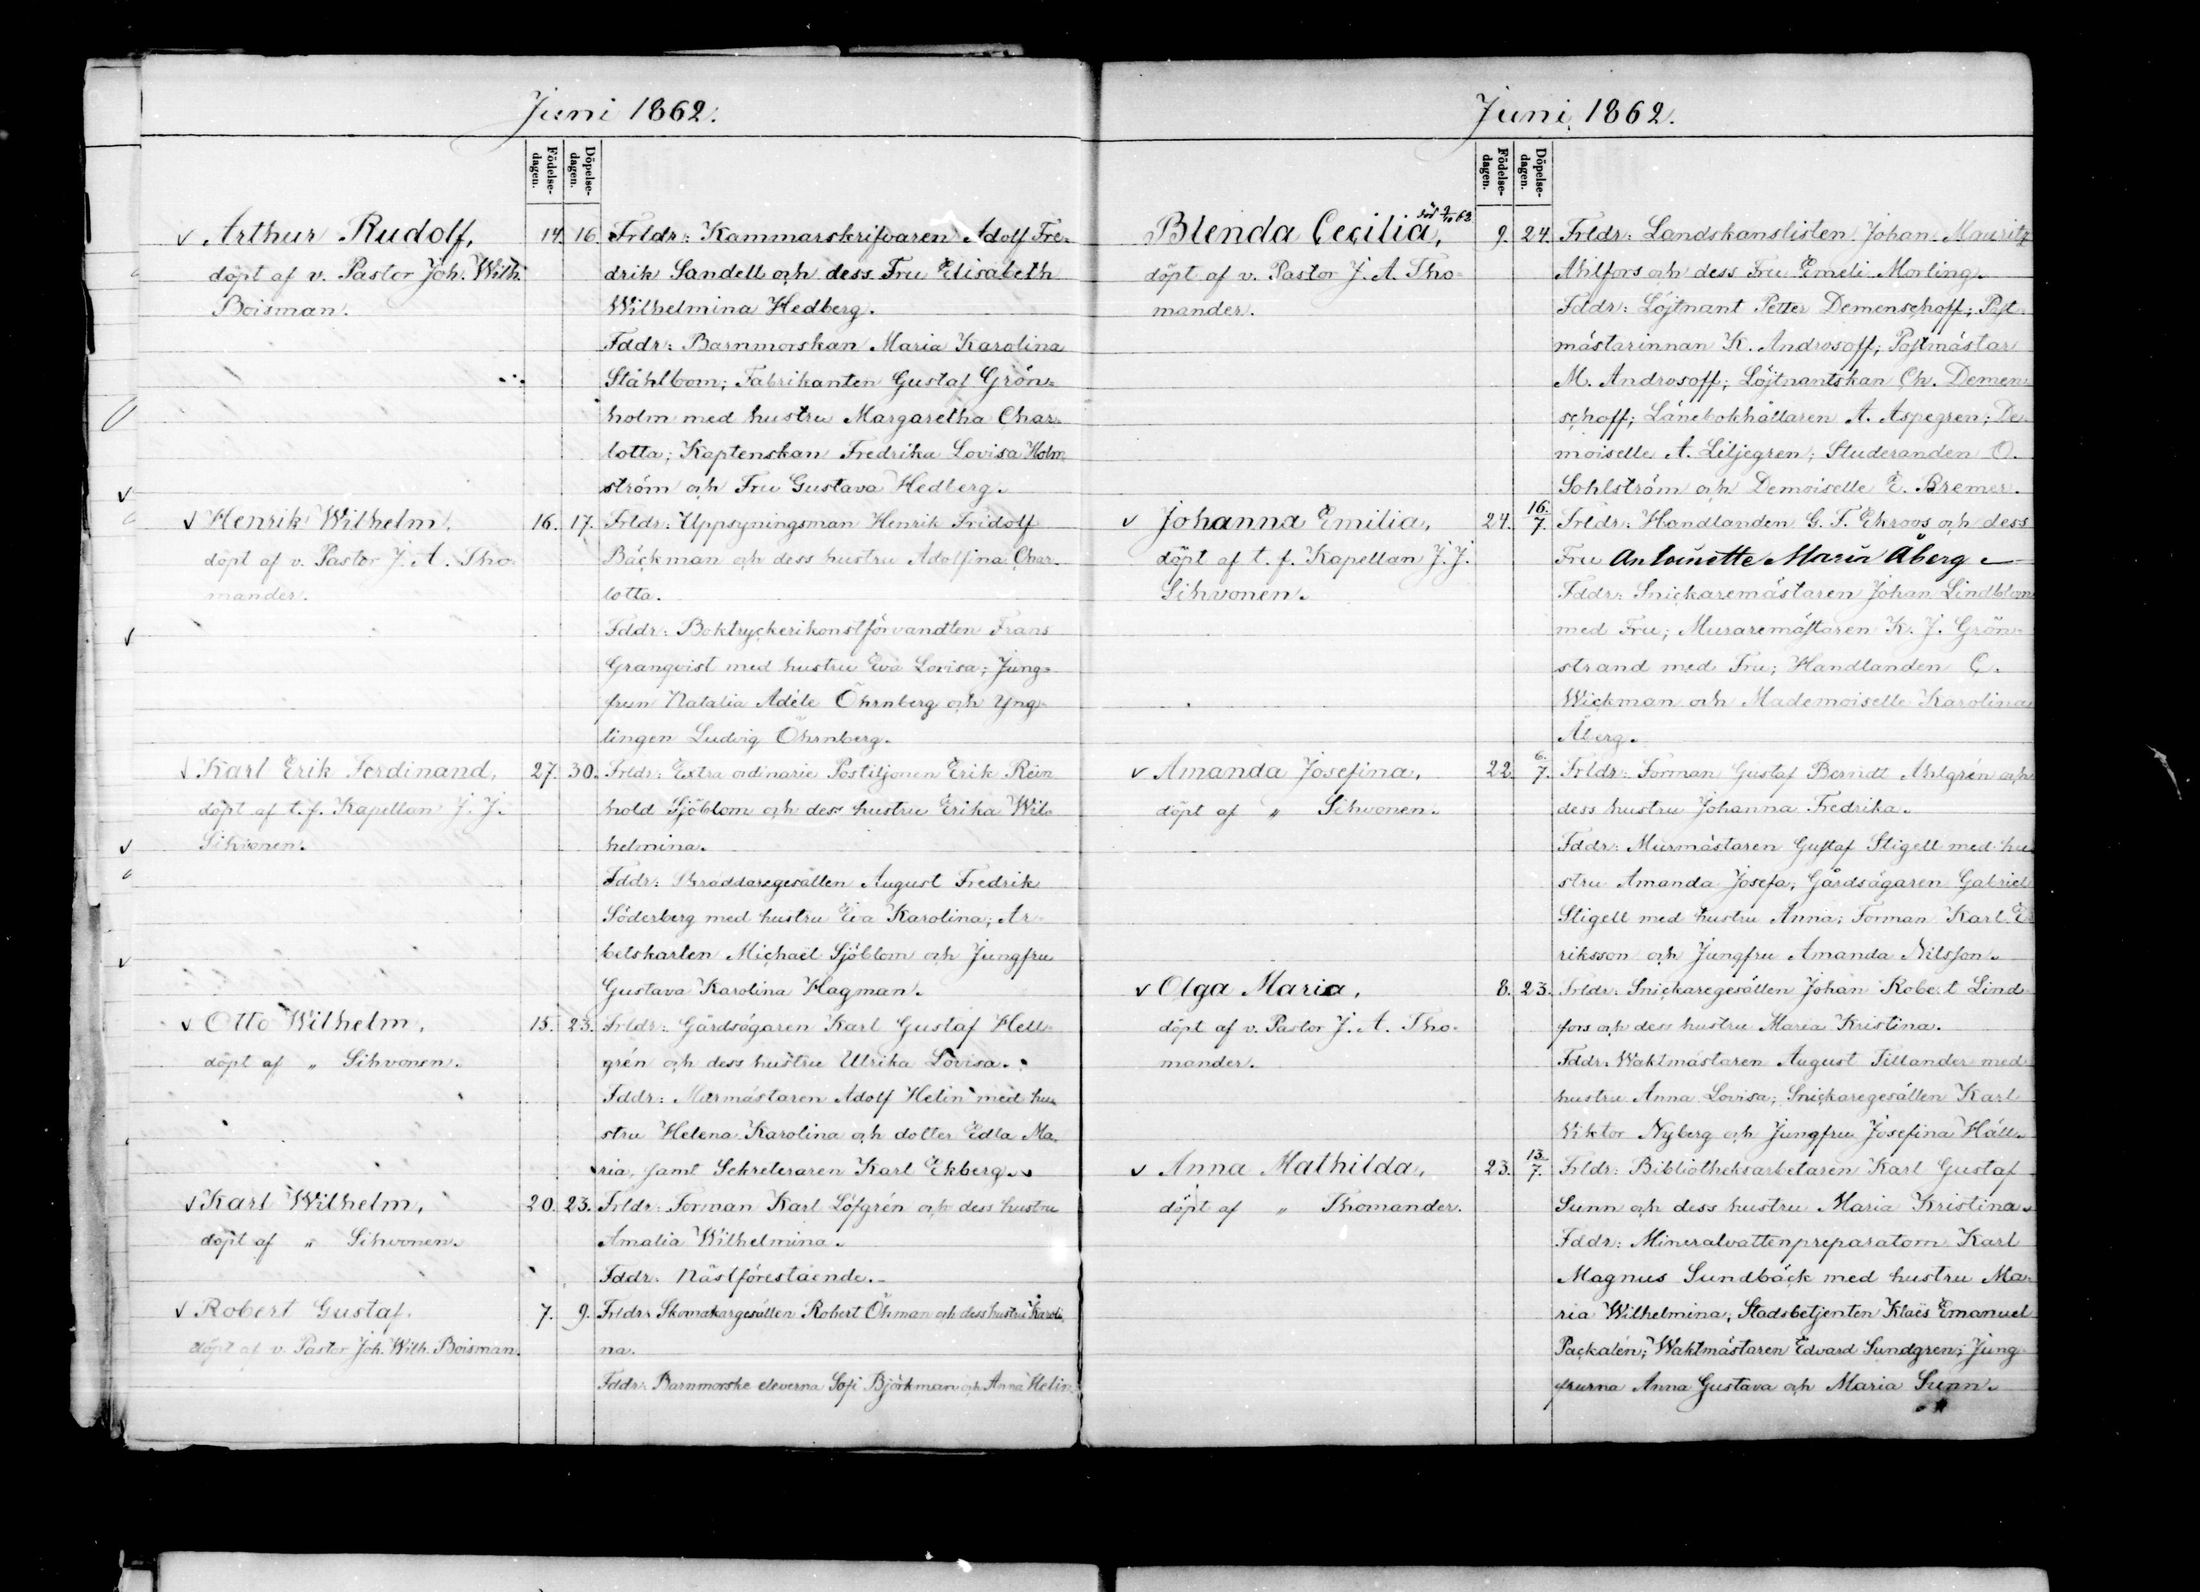 Juni 1862.
Födelse-dagen.
Döpelse-dagen.
Arthur Rudolf,
döpt af v. Pastor Joh. Wilh.
Boisman.
14. 16.
Frldr: Kammarskrifvaren Adolf Fre-
drik Sandell och dess Fru Elisabeth
Wilhelmina Hedberg.
Fddr: Barnmorskan Maria Karolina
Ståhlbom; Fabrikanten Gustaf Grön-
holm med hustru Margaretha Char-
lotta; Kaptenskan Fredrika Lovisa Holm
ström och Fru Gustava Hedberg.
Henrik Wilhelm,
döpt af v. Pastor J. A. Tho-
mander.
16. 17.
Frldr: Uppsyningsman Henrik Fridolf
Bäckman och dess hustru Adolfina Char-
lotta.
Fddr: Boktryckerikonstförvandten Frans
Granqvist med hustru Eva Lovisa; Jung-
frun Natalia Adéle Öhrnberg och Yng-
lingen Ludvig Öhrnberg.
Karl Erik Ferdinand,
döpt af t. f. Kapellan J. J.
Sihvonen.
27. 30.
Frldr: Extra ordinarie Postiljonen Erik Rein
hold Sjöblom och dess hustru Erika Wil-
helmina.
Fddr: Skräddaregesällen August Fredrik
Söderberg med hustru Eva Karolina; Ar-
betskarlen Michaël Sjöblom och Jungfru
Gustava Karolina Hagman.
Otto Wilhelm,
döpt af " Sihvonen.
15. 23.
Frldr: Gårdsägaren Karl Gustaf Hell-
grén och dess hustru Ulrika Lovisa.
Fddr: Murmästaren Adolf Helin med hu-
stru Helena Karolina och dotter Edla Ma-
ria, samt Sekreteraren Karl Ekberg.
Karl Wilhelm,
döpt af " Sihvonen.
20. 23.
Frldr: Forman Karl Löfgrén och dess hustru
Amalia Wilhelmina.
Fddr: Nästförestående.
Robert Gustaf,
döpt af v. Pastor Joh. Wilh. Boisman.
7. 9.
Frldr: Skomakargesällen Robert Öhman och dess hustru Karoli
na.
Fddr: Barnmorske eleverna Sofi Björkman och Anna Helin
Juni 1862.
Födelse-dagen.
Döpelse-dagen.
Blenda Cecilia,
döpt af v. Pastor J. A. Tho-
mander.
9. 24.
Frldr: Landskanslisten Johan Mauritz
Ahlfors och dess Fru Emeli Morling.
Fddr: Löjtnant Petter Demenschoff; Post-
mästarinnan K. Androsoff; Postmästar
M. Androsoff; Löjtnantskan Ch. Demen-
schoff; Länebokhållaren A. Aspegren; De-
moiselle A. Liljegren; Studeranden O.
Sohlström och Demoiselle E. Bremer.
Johanna Emilia,
döpt af t. f. Kapellan J. J.
Sihvonen.
24. 16/7.
Frldr: Handlanden G. F. Ekroos och dess
Fru Antoinette Maria Åberg
Fddr: Snickaremästaren Johan Lindblom
med Fru; Muraremästaren K. J. Grön-
strand med Fru; Handlanden C.
Wickman och Mademoiselle Karolina
Åberg.
Amanda Josefina,
döpt af " Sihvonen.
22. 6/7.
Frldr: Forman Gustaf Berndt Ahlgrén och
dess hustru Johanna Fredrika.
Fddr: Murmästaren Gustaf Stigell med hu
stru Amanda Josefa; Gårdsägaren Gabriel
Stigell med hustru Anna; Forman Karl E-
riksson och Jungfru Amanda Nilsson.
Olga Maria,
döpt af v. Pastor J. A. Tho-
mander.
8. 23.
Frldr: Snickaregesällen Johan Robert Lind
fors och dess hustru Maria Kristina.
Fddr: Waktmästaren August Tillander med
hustru Anna Lovisa; Snickaregesällen Karl
Viktor Nyberg och Jungfru Josefina Häll.
Anna Mathilda,
döpt af " Thomander.
23. 13/7.
Frldr: Bibliotheksarbetaren Karl Gustaf
Sunn och dess hustru Maria Kristina.
Fddr: Mineralvattenpreparatorn Karl
Magnus Sundbäck med hustru Ma-
ria Wilhelmina; Stadsbetjenten Klaës Emanuel
Packalén; Waktmästaren Edvard Sundgren; Jung
frurna Anna Gustava och Maria Sunn.